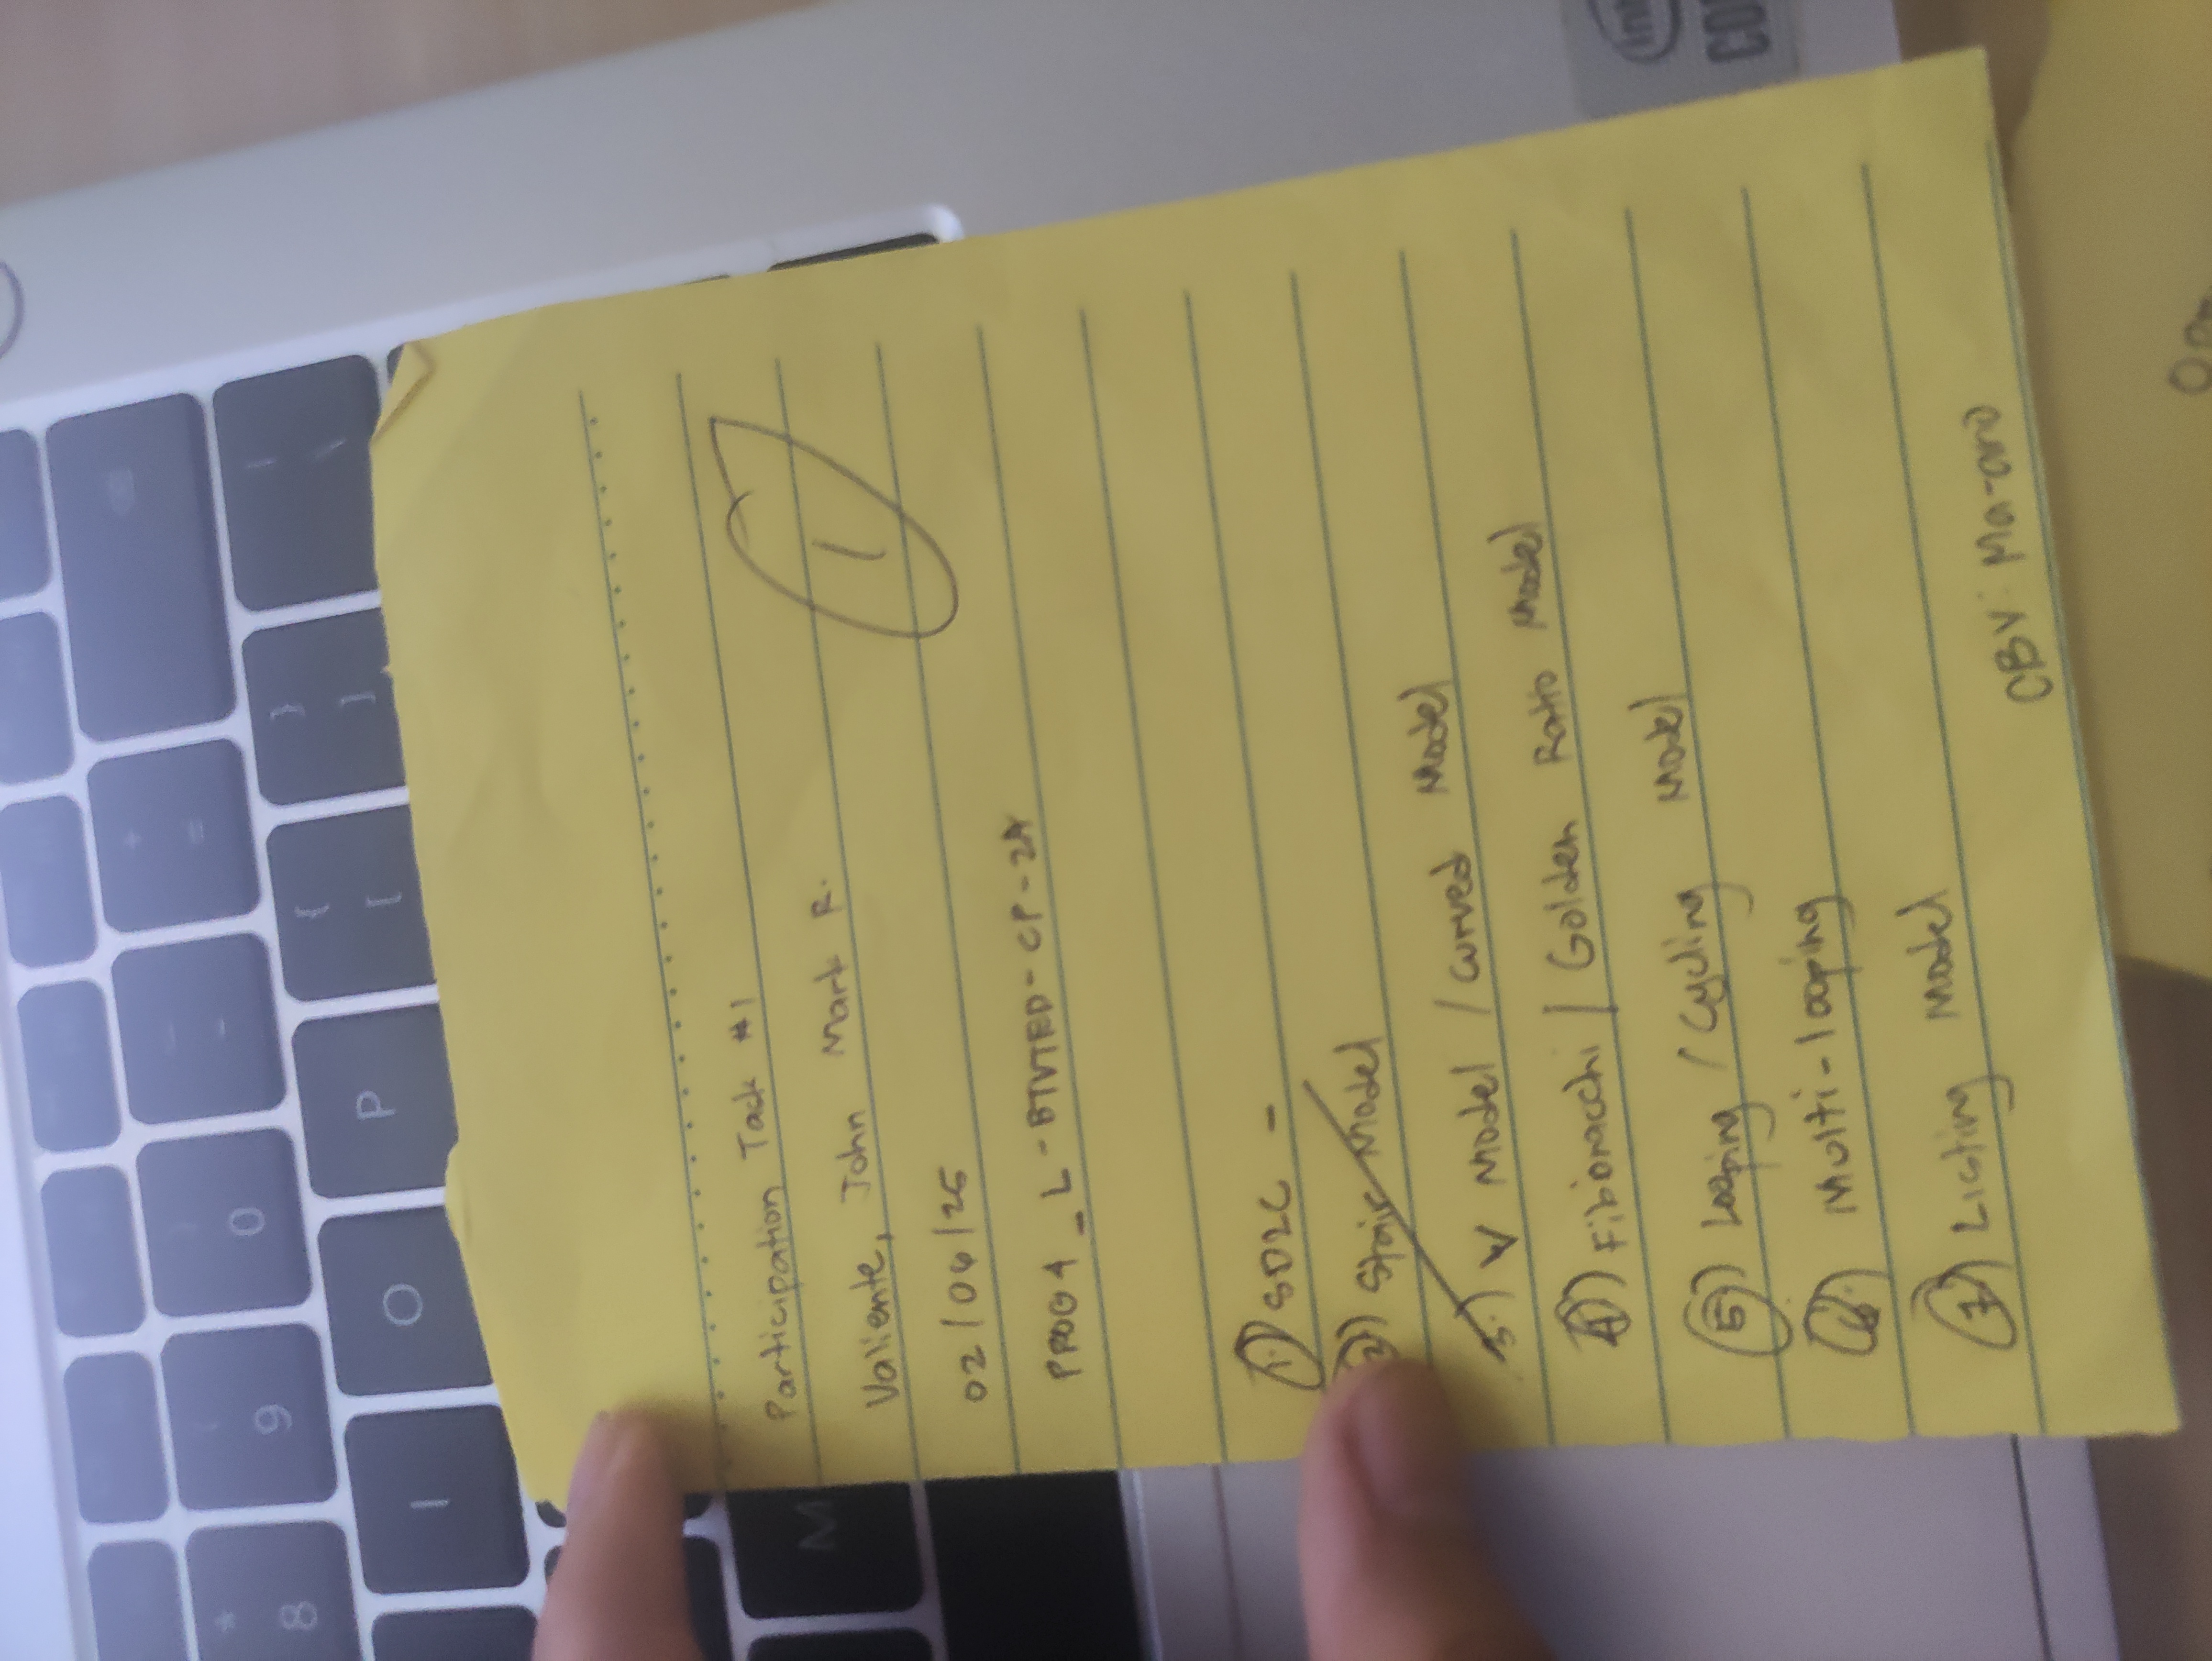 *
8
(
9
)
0
—
-
+
=
I
O
P
{
[
}
]
|
\
M
Participation Task #1
Valiente, John Mark R.
02/06/25
PROG4_L-BTVTED-CP-2A
1
1.) SDLC -
2.) Stair Model
3.) V Model / Curved Model
4.) Fibonacchi / Golden Ratio Model
5.) Looping / Cycling Model
6.) Multi-looping
7.) Listing Model
CBY: Ma-ano